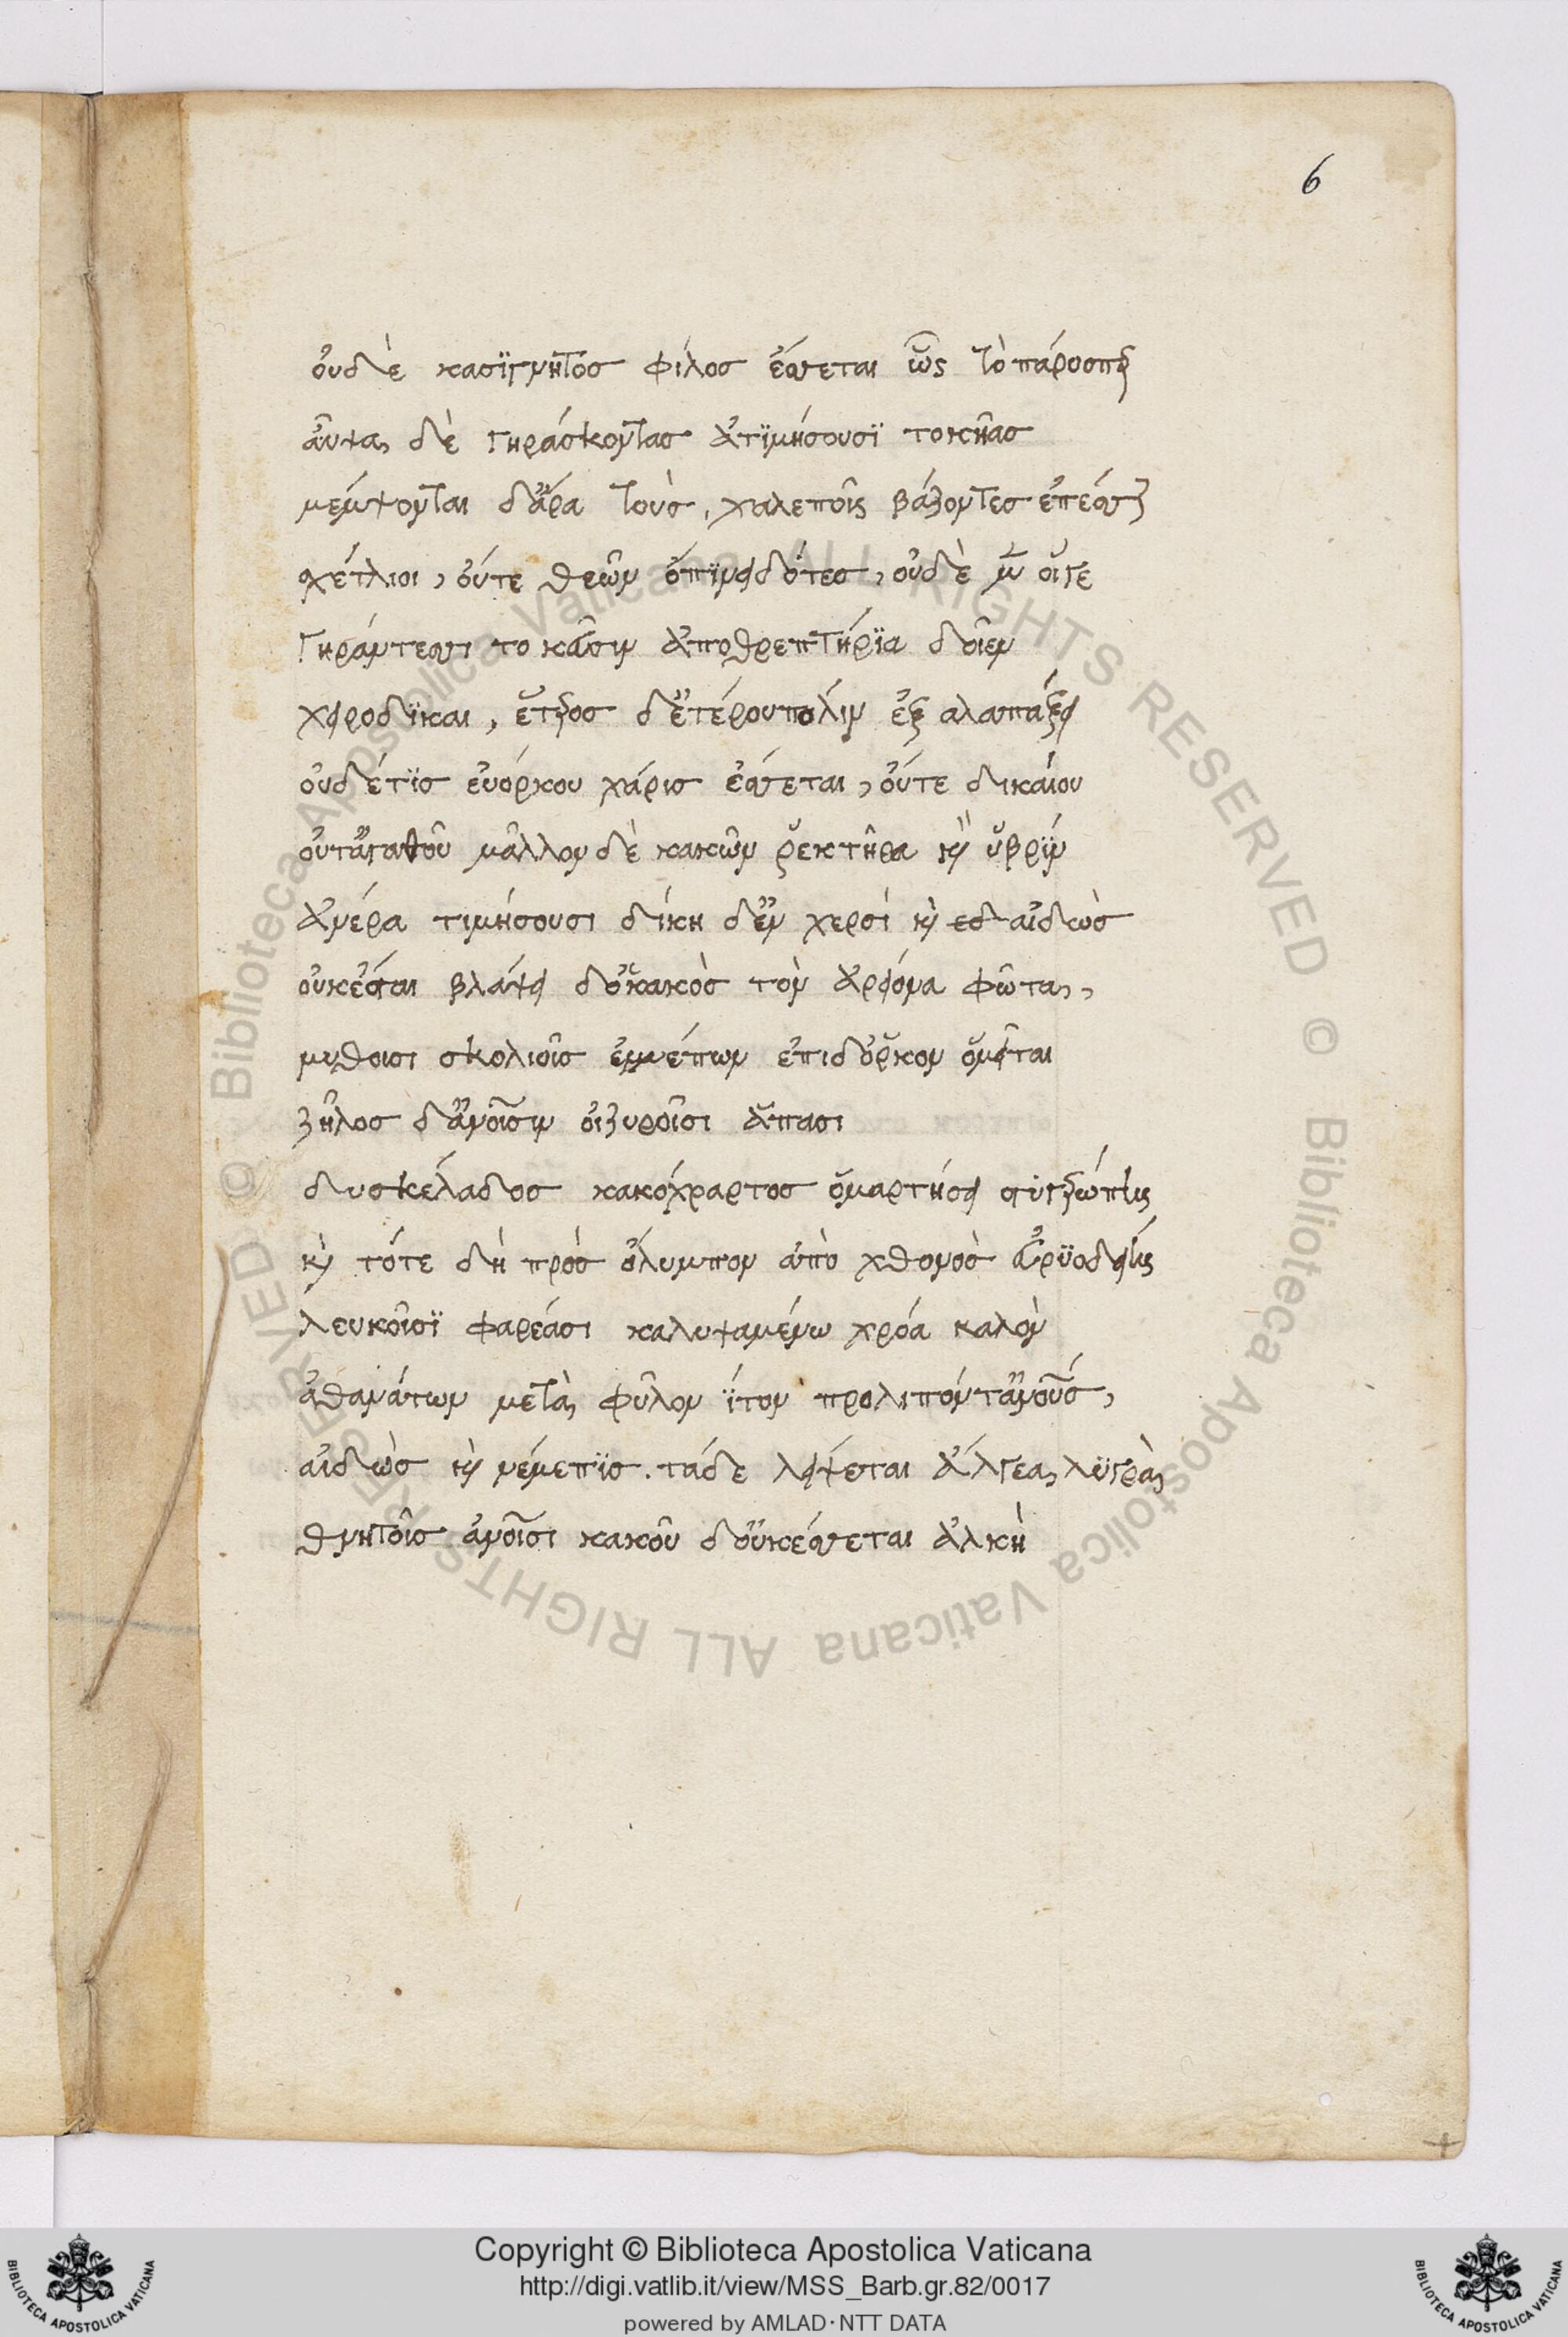 6
οὐδὲ κασϊγνητὸσ φίλοσ ἐάσεται ὥς τὸ πάροσπερ
ἄυψα δὲ γηράσκονταϲ ἀτϊμήσουσϊ τοκῆασ
μέμψονται δ'ἄρα τοὺσ, χαλεποῖς βάζοντεσ ἐπέεσσι
σχέτλιοι, οὔτε θεῶν ὄπϊν εἰδότεσ, οὐδὲ μὲν οἵγε
Γηράντεσσι τοκεῦσιν ἀποθρεπτήρϊα δοῖεν
χειροδΐκαι, ἕτεροσ δ'ἑτέρου πόλιν ἐξ αλαπάξει
οὐδέτϊσ εὐόρκου χάρισ ἔσσεται, οὔτε δικαίου
οὔτ'ἀγαθοῦ μᾶλλον δὲ κακῶν ῥεκτῆρα κὴ ὕβρϊν
ἀνέρα τιμήσουσι δίκη δ'ἐν χερσί κὴ εδ αἰδὼσ
οὐκέσται βλάψει δ'ὁ κακὸσ τὸν ἀρείονα φῶτα,
μυθοισι σκολιοῖσ ἐννέπων ἐπιδ'ὅρκον ὀμεῖται
ζῆλοσ δ'ἀνοῖσιν οἰζυροῖσι ἅπασι
δυσκέλαδοσ κακόχραρτοσ ὁμαρτήσει στυγερώπης
κὴ τότε δὴ πρὸσ ὄλυμπον ἀπὸ χθονὸσ εὐρϋοδείης
λευκοῖσϊ φαρέασι καλυψαμένω χρόα καλὸν
ἀθανάτων μετὰ φῦλον ἴτον προλιπόντ'ἀνοῦσ,
αἰδὼσ κὴ νέμεπϊσ. τάδε λείψεται ἄλγεα λϋγρὰ
θνητοῖσ ἀνοῖσι κακοῦ δ'οὐκέσσεται ἀλκὴ
Copyright © Biblioteca Apostolica Vaticana
http://digi.vatlib.it/view/MSS_Barb.gr.82/0017
powered by AMLAD·NTT DATA
BIBLIOTECA APOSTOLICA VATICANA
BIBLIOTECA APOSTOLICA VATICANA
© Biblioteca Apostolica Vaticana ALL RIGHTS RESERVED © Biblioteca Apostolica Vaticana ALL RIGHTS RESERVED